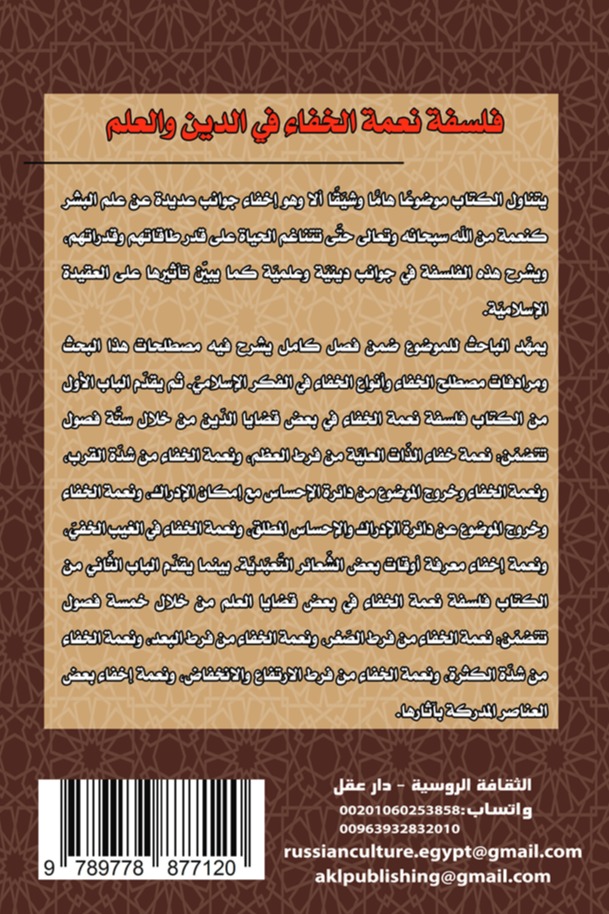 فلسفة نعمة الخفاء في الدين والعلم
يتناول الكتاب موضوعًا هامًا وشيّقًا ألا وهو إخفاء جوانب عديدة عن علم البشر
كنعمة من الله سبحانه وتعالى حتّى تتناغم الحياة على قدر طاقاتهم وقدراتهم،
ويشرح هذه الفلسفة في جوانب دينيّة وعلميّة كما يبيّن تأثيرها على العقيدة
الإسلاميّة.
يمهّد الباحث للموضوع ضمن فصل كامل يشرح فيه مصطلحات هذا البحث
ومرادفات مصطلح الخفاء وأنواع الخفاء في الفكر الإسلاميّ. ثم يقدّم الباب الأول
من الكتاب فلسفة نعمة الخفاء في بعض قضايا الدّين من خلال ستّة فصول
تتضمّن: نعمة خفاء الذّات العليّة من فرط العظم، ونعمة الخفاء من شدّة القرب،
ونعمة الخفاء وخروج الموضوع من دائرة الإحساس مع إمكان الإدراك، ونعمة الخفاء
وخروج الموضوع عن دائرة الإدراك والإحساس المطلق، ونعمة الخفاء في الغيب الخفيّ،
ونعمة إخفاء معرفة أوقات بعض الشّعائر التّعبّديّة. بينما يقدّم الباب الثّاني من
الكتاب فلسفة نعمة الخفاء في بعض قضايا العلم من خلال خمسة فصول
تتضمّن: نعمة الخفاء من فرط الصّغر، ونعمة الخفاء من فرط البعد، ونعمة الخفاء
من شدّة الكثرة، ونعمة الخفاء من فرط الارتفاع والانخفاض، ونعمة إخفاء بعض
العناصر المدركة بآثارها.
الثقافة الروسية - دار عقل
واتساب:00201060253858
00963932832010
russianculture.egypt@gmail.com
aklpublishing@gmail.com
9 789778 877120